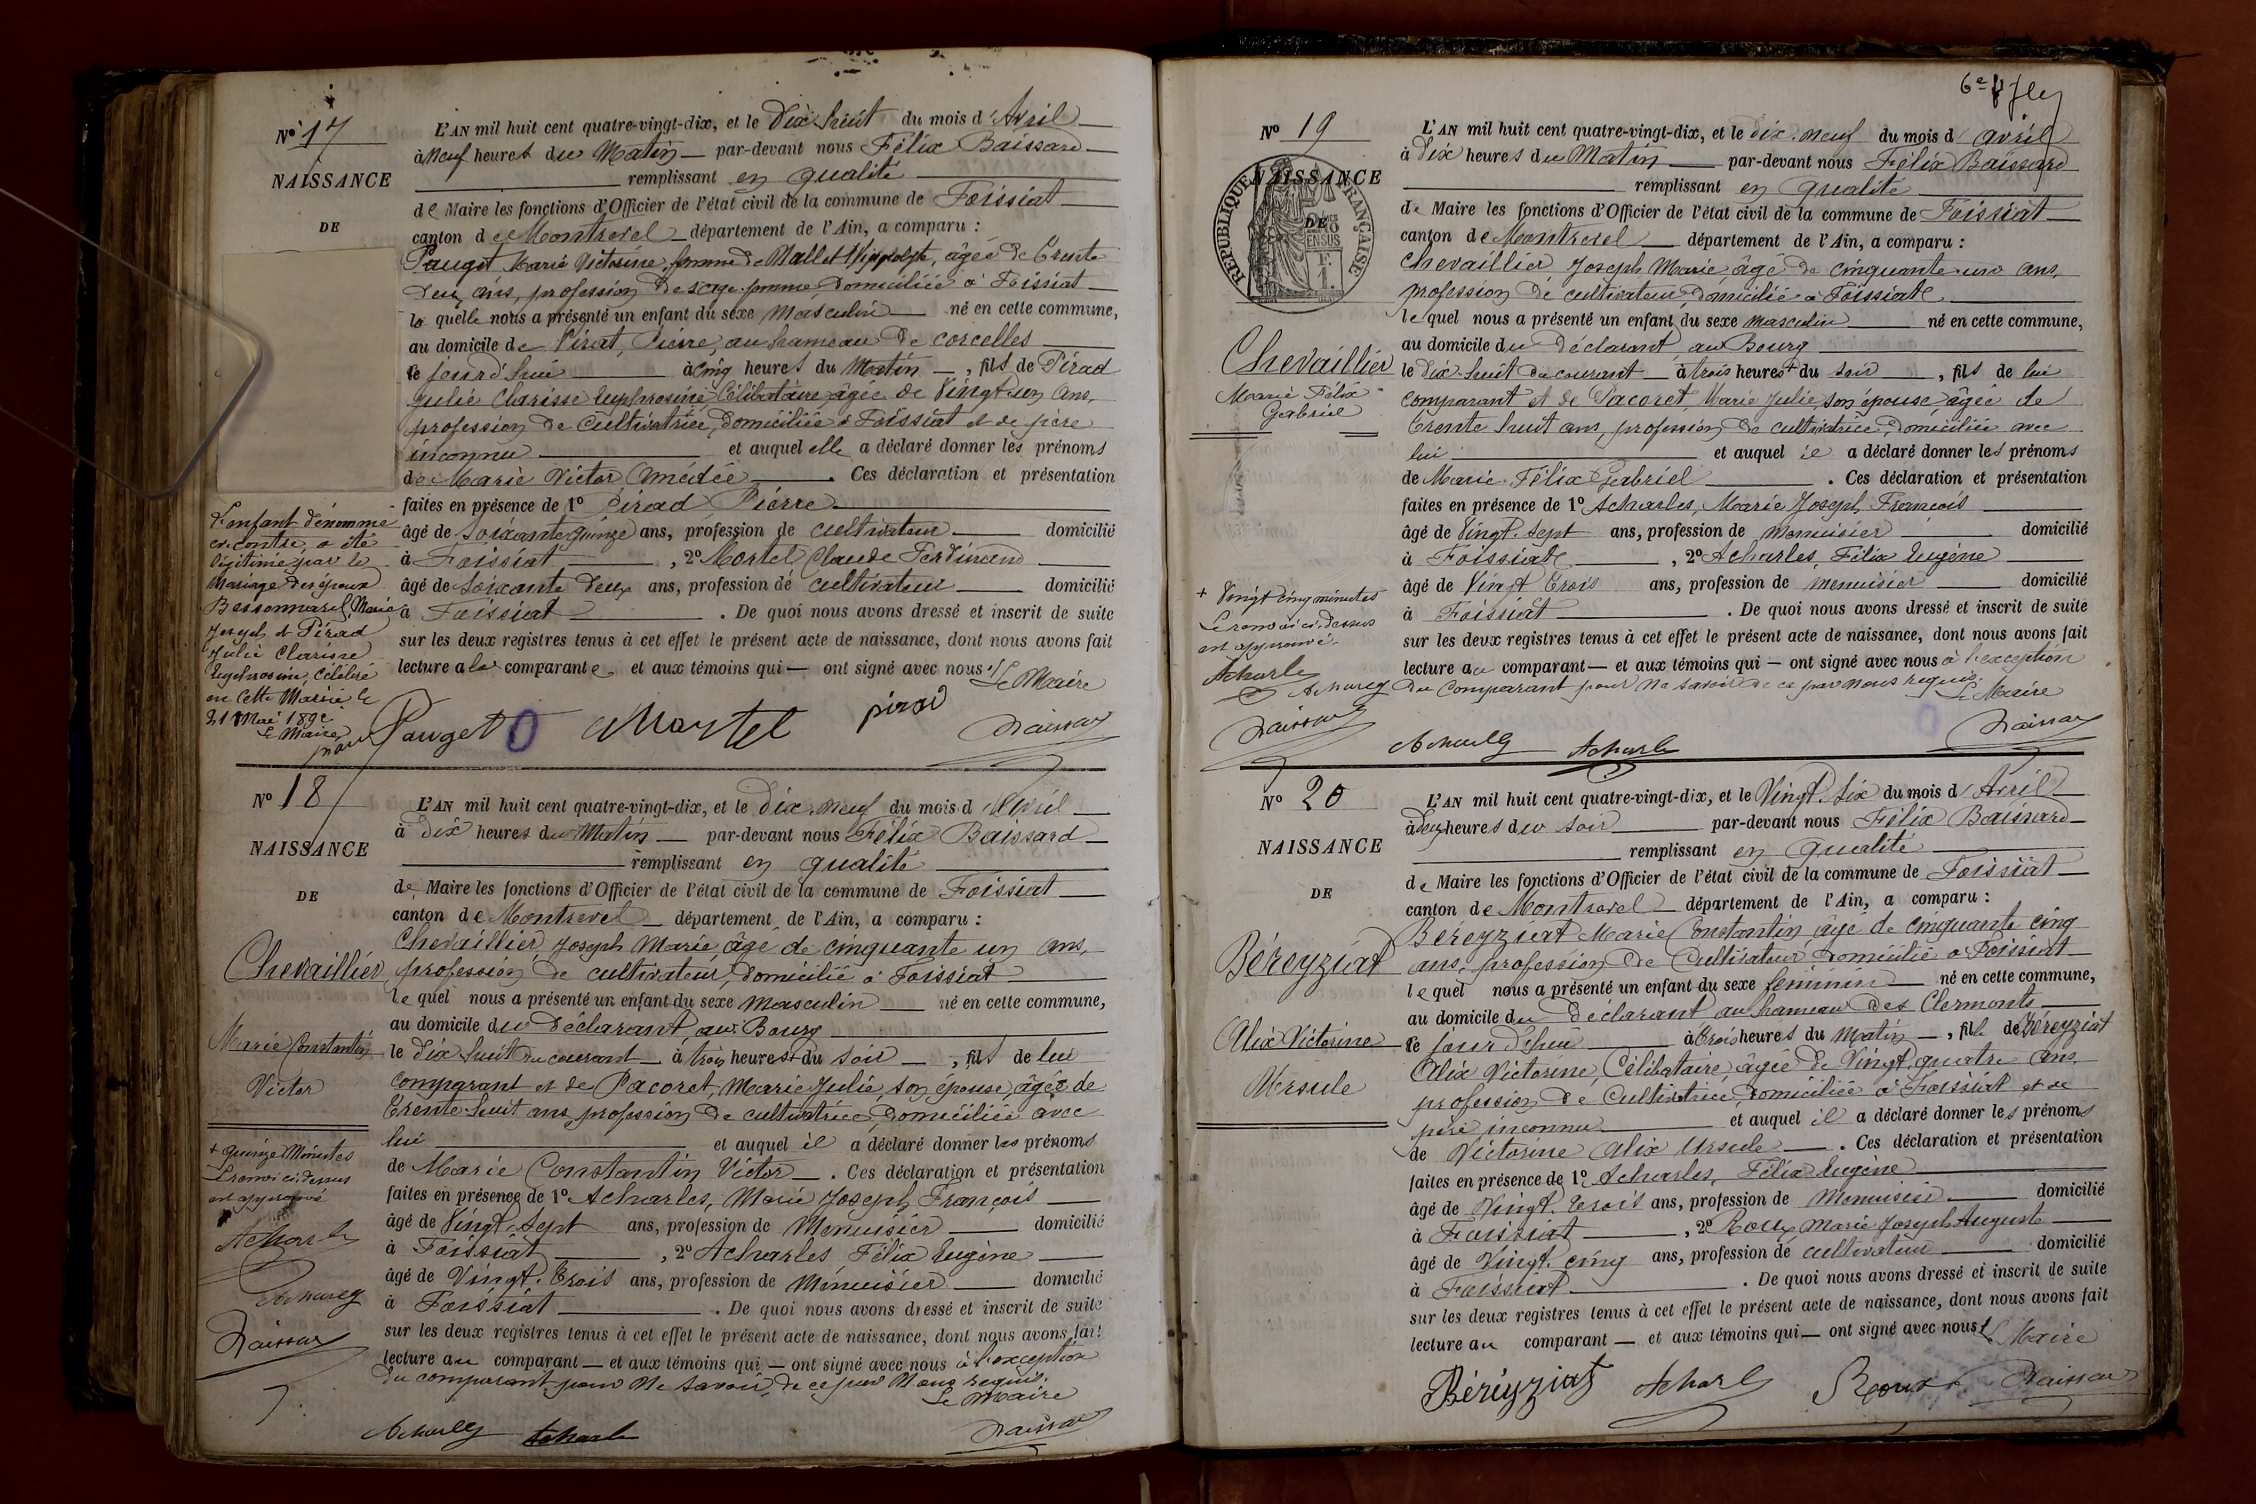 Nº 17
NAISSANCE
DE
L'AN mil huit cent quatre-vingt-dix, et le Dix huit du mois d'Avril
à Neuf heures du Matin par-devant nous Félix Baissard
remplissant en qualité
de Maire les fonctions d'Officier de l'état civil de la commune de Foissiat
canton de Montrevel département de l'Ain, a comparu :
Pauget Marie Victorine, femme de Mallet Hippolyte, âgée de Trente
deux ans, profession de sage-femme, domiciliée à Foissiat
la quelle nous a présenté un enfant du sexe Masculin né en cette commune,
au domicile de Pirat, Pierre, au hameau de corcelles
le jourd'hui à cinq heures du Matin, fils de Pirad
Julie Clarisse Euphrosine Célibataire âgée de Vingt un ans,
profession de Cultivatrice, domiciliée à Foissiat et de père
inconnu et auquel elle a déclaré donner les prénoms
de Marie Victor Amédée. Ces déclaration et présentation
faites en présence de 1º Pirad Pierre
âgé de Soixante quinze ans, profession de cultivateur domicilié
à Foissiat, 2º Mortel Claude Ferdinand
âgé de Soixante deux ans, profession de cultivateur domicilié
à Foissiat. De quoi nous avons dressé et inscrit de suite
sur les deux registres tenus à cet effet le présent acte de naissance, dont nous avons fait
lecture a la comparante et aux témoins qui ont signé avec nous
Le Maire
L'enfant dénommé
ci-contre, a été
légitimé par le
Mariage des époux
Bessonnard, Marie
Joseph et Pirad
Julie Clarisse
Euphrosine, Célébré
en cette Mairie le
21 Mai 189
Le Maire
Pauget Mortel pirad Baissard
Nº 18
NAISSANCE
DE
Chevaillier
Marie Constantin
Victor
L'AN mil huit cent quatre-vingt-dix, et le Dix neuf du mois d'Avril
à Dix heures du Matin par-devant nous Félix Baissard
remplissant en qualité
de Maire les fonctions d'Officier de l'état civil de la commune de Foissiat
canton de Montrevel département de l'Ain, a comparu :
Chevaillier, Joseph Marie, âgé de cinquante un ans,
profession de cultivateur, domicilié à Foissiat
le quel nous a présenté un enfant du sexe Masculin né en cette commune,
au domicile du Déclarant au Bourg
le Dix huit du courant à trois heures + du soir, fils de lui
comparant et de Pacoret, Marie Julie, son épouse, âgée de
Trente huit ans, profession de cultivatrice, domiciliée avec
lui et auquel il a déclaré donner les prénoms
de Marie Constantin Victor. Ces déclaration et présentation
faites en présence de 1º Acharles, Marie Joseph François
âgé de Vingt-Sept ans, profession de Menuisier domicilié
à Foissiat, 2º Acharles, Félix Eugène
âgé de Vingt-Trois ans, profession de Menuisier domicilié
à Foissiat. De quoi nous avons dressé et inscrit de suite
sur les deux registres tenus à cet effet le présent acte de naissance, dont nous avons fait
lecture au comparant et aux témoins qui ont signé avec nous à l'exception
du comparant pour ne savoir, de ce par Nous requis.
Le Maire
+ quinze Minutes
Le renvoi ci-dessus
est approuvé
Acharles
Acharles
Baissard
Acharles Acharles Baissard
6e
Nº 19
NAISSANCE
DE
RÉPUBLIQUE FRANÇAISE
Chevaillier
Marie Félix
Gabriel
L'AN mil huit cent quatre-vingt-dix, et le dix-neuf du mois d'avril
à Dix heures du Matin par-devant nous Félix Baissard
remplissant en qualité
de Maire les fonctions d'Officier de l'état civil de la commune de Foissiat
canton de Montrevel département de l'Ain, a comparu :
Chevaillier Joseph Marie, âgé de cinquante un ans,
profession de cultivateur, domicilié à Foissiat
le quel nous a présenté un enfant du sexe masculin né en cette commune,
au domicile du Déclarant au Bourg
le Dix-huit du courant à trois heures + du soir, fils de lui
comparant et de Pacoret, Marie Julie, son épouse, âgée de
Trente huit ans, profession de cultivatrice, domiciliée avec
lui et auquel il a déclaré donner les prénoms
de Marie Félix Gabriel. Ces déclaration et présentation
faites en présence de 1º Acharles, Marie Joseph François
âgé de Vingt-Sept ans, profession de Menuisier domicilié
à Foissiat, 2º Acharles, Félix Eugène
âgé de Vingt Trois ans, profession de menuisier domicilié
à Foissiat. De quoi nous avons dressé et inscrit de suite
sur les deux registres tenus à cet effet le présent acte de naissance, dont nous avons fait
lecture au comparant et aux témoins qui ont signé avec nous à l'exception
du comparant pour ne savoir de ce par nous requis.
Le Maire
+ Vingt cinq minutes
Le renvoi ci-dessus
est approuvé.
Acharles
Acharles
Baissard
Acharles Acharles Baissard
Nº 20
NAISSANCE
DE
Béreyziat
Alix Victorine
Ursule
L'AN mil huit cent quatre-vingt-dix, et le Vingt-six du mois d'Avril
à deux heures du soir par-devant nous Félix Baissard
remplissant en qualité
de Maire les fonctions d'Officier de l'état civil de la commune de Foissiat
canton de Montrevel département de l'Ain, a comparu :
Béreyziat Marie Constantin, âgé de cinquante cinq
ans, profession de Cultivateur domicilié à Foissiat
le quel nous a présenté un enfant du sexe féminin né en cette commune,
au domicile du déclarant au hameau des Clermonts
le jourd'hui à trois heures du Matin, fille de Béreyziat
Alix Victorine, Célibataire, âgée de Vingt quatre ans
profession de Cultivatrice, domiciliée à Foissiat et de
père inconnu et auquel il a déclaré donner les prénoms
de Victorine Alix Ursule. Ces déclaration et présentation
faites en présence de 1º Acharles, Félix Eugène
âgé de Vingt-Trois ans, profession de Menuisier domicilié
à Foissiat, 2º Roux Marie Joseph Auguste
âgé de Vingt-cinq ans, profession de cultivateur domicilié
à Foissiat. De quoi nous avons dressé et inscrit de suite
sur les deux registres tenus à cet effet le présent acte de naissance, dont nous avons fait
lecture au comparant et aux témoins qui ont signé avec nous
Le Maire
Béréyziat Acharles Roux Baissard